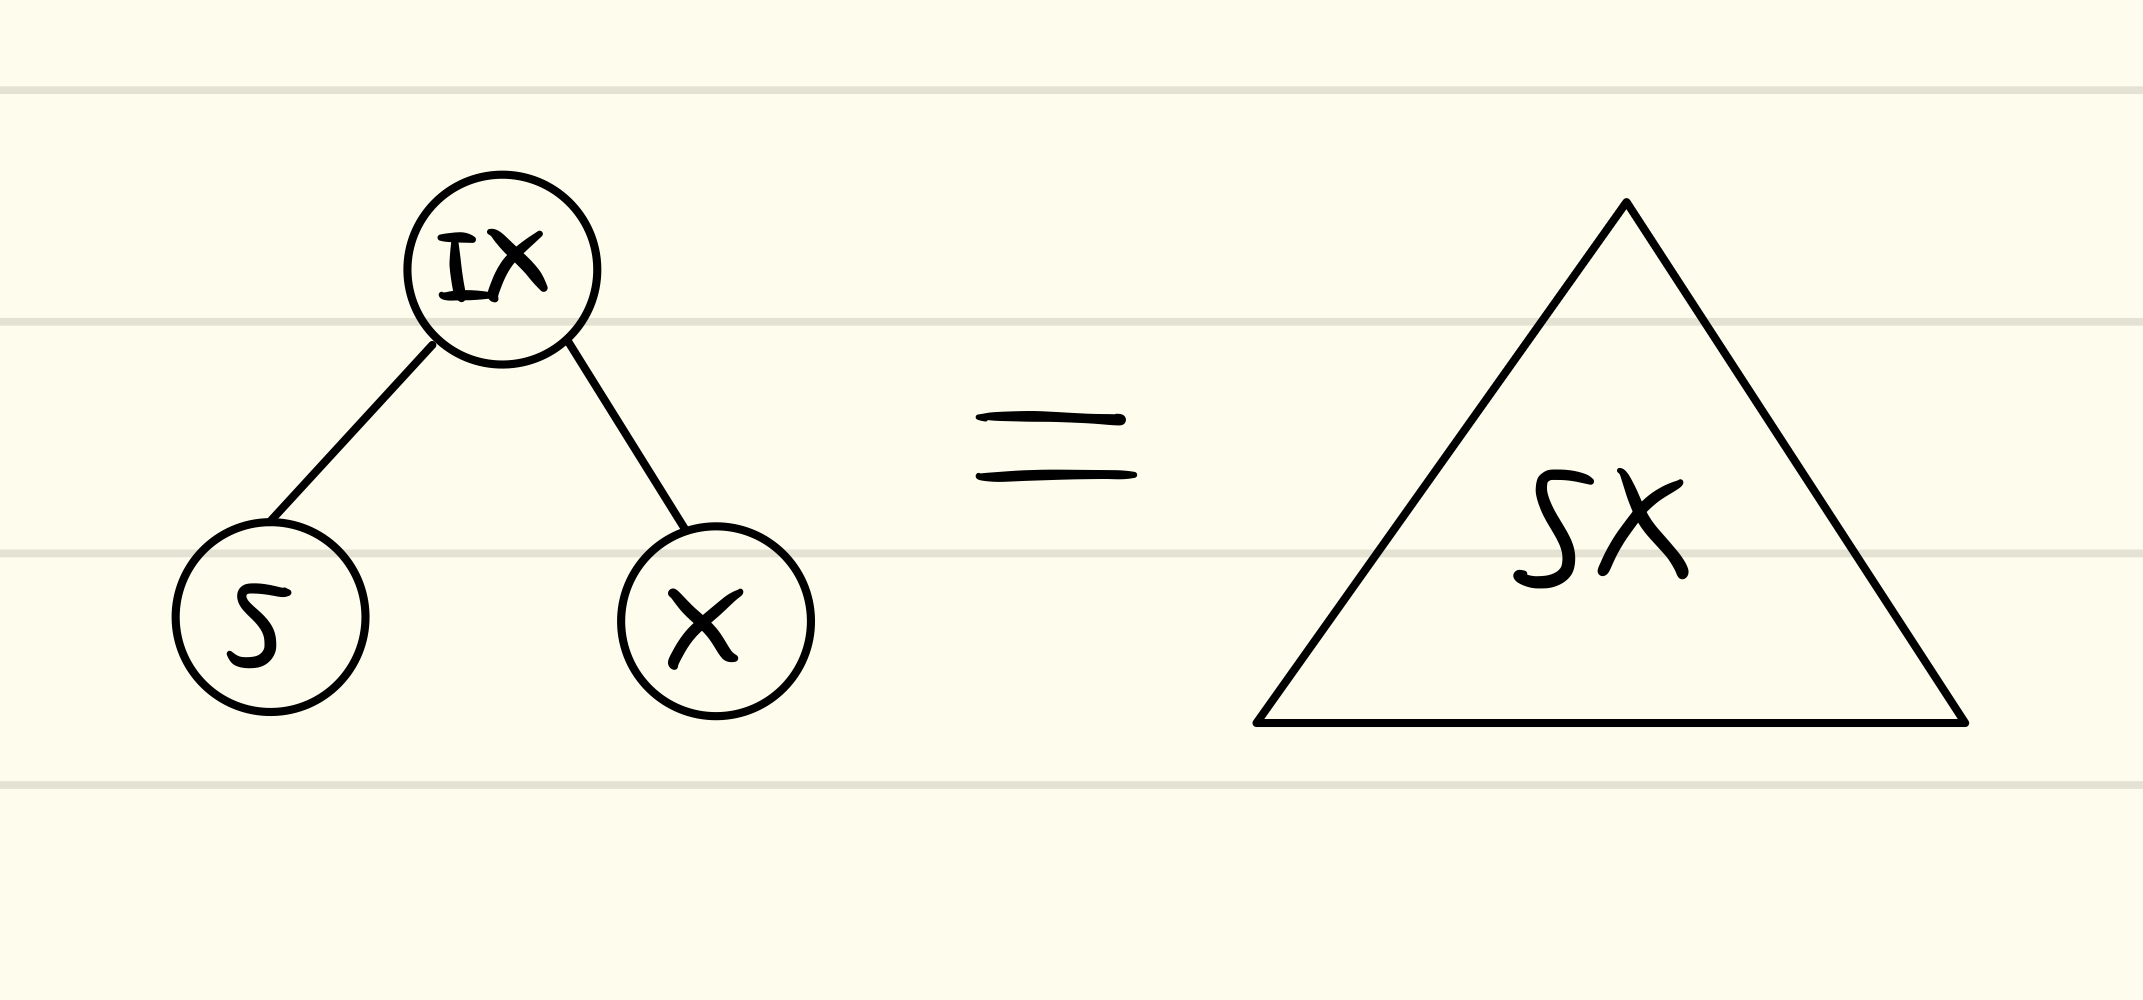 IX
S X
=
SX